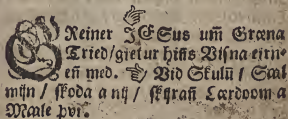 OReiner JESus um̃ Græna
Tried/gietur hiñs Visna eirn-
eñ med. Vid Skulũ / Sæl
mijn / skoda a nij / skijrañ Lærdoom a
Maale þvi.